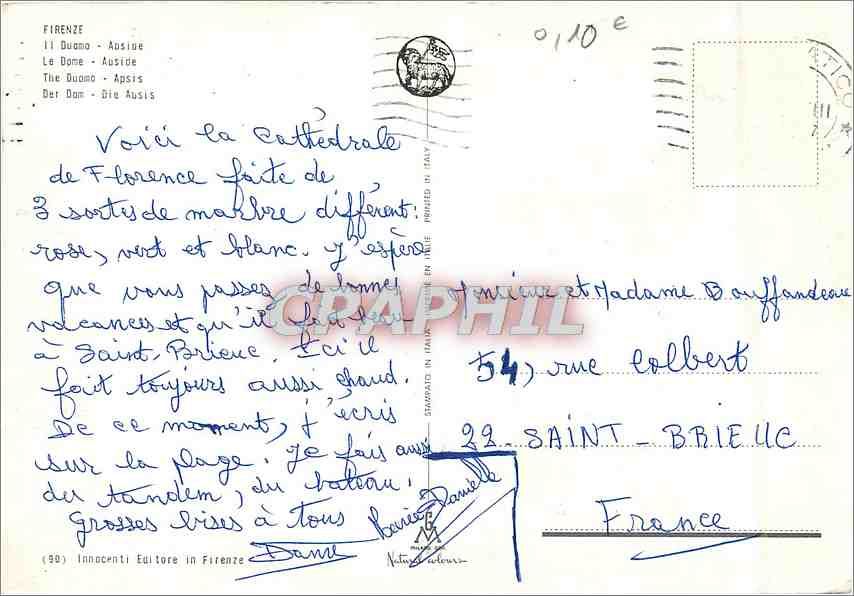 FIRENZE
Il Duomo - Abside
Le Dome - Auside
The Duomo - Apsis
Der Dom - Die Ausis
0,10 €
Voici la Cathédrale
de Florence faite de
3 sortes de marbre différent :
rose, vert et blanc. J'espère
que vous passez de bonnes
vacances et qu'il fait beau
à Saint-Brieuc. Ici il
fait toujours aussi chaud.
De ce moment, j'écris
sur la plage. Je fais aussi
du tandem, du bateau.
Grosses bises à tous
Marie-Danielle
(90) Innocenti Editore in Firenze
STAMPATO IN ITALIA IMPRIMÉE EN ITALIE PRINTED IN ITALY
CPAPHIL
Monsieur et Madame Bouffandeau
54, rue Colbert
22 - SAINT - BRIEUC
France
MILANO
Natural colours